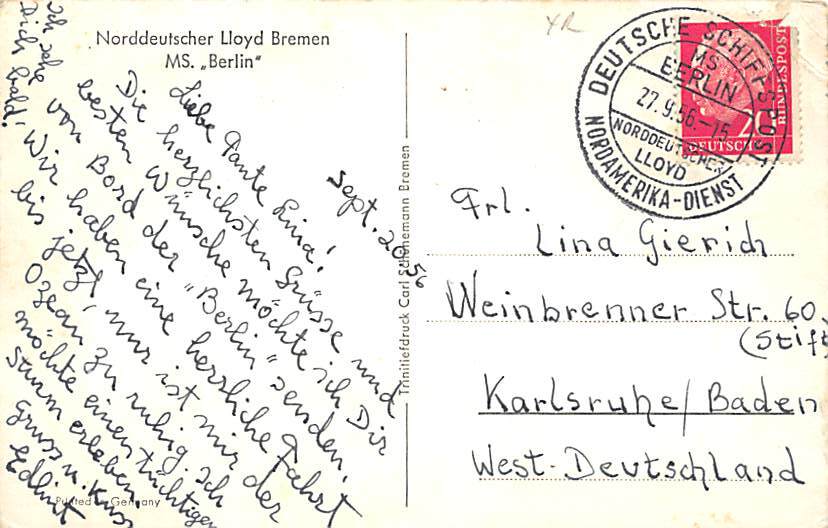 Norddeutscher Lloyd Bremen
MS. „Berlin"
Sept. 20. 56
Liebe Tante Lina!
Die herzlichsten Grüsse und
besten Wünsche möchte ich Dir
von Bord der "Berlin" senden.
Wir haben eine herrliche Fahrt
bis jetzt, nur ist mir der
Ozean zu ruhig. Ich
möchte einen tüchtigen
Sturm erleben.
Gruss u. Kuss
Ich sehe
Dich bald!
Printed in Germany
Trinitiefdruck Carl Schünemann Bremen
DEUTSCHE SCHIFFSPOST
MS
BERLIN
27.9.56.-15
NORDDEUTSCHER
LLOYD
NORDAMERIKA-DIENST
DEUTSCHE
BUNDESPOST
20
Frl.
Lina Gierich
Weinbrenner Str. 60
(Stift
Karlsruhe/Baden
West-Deutschland